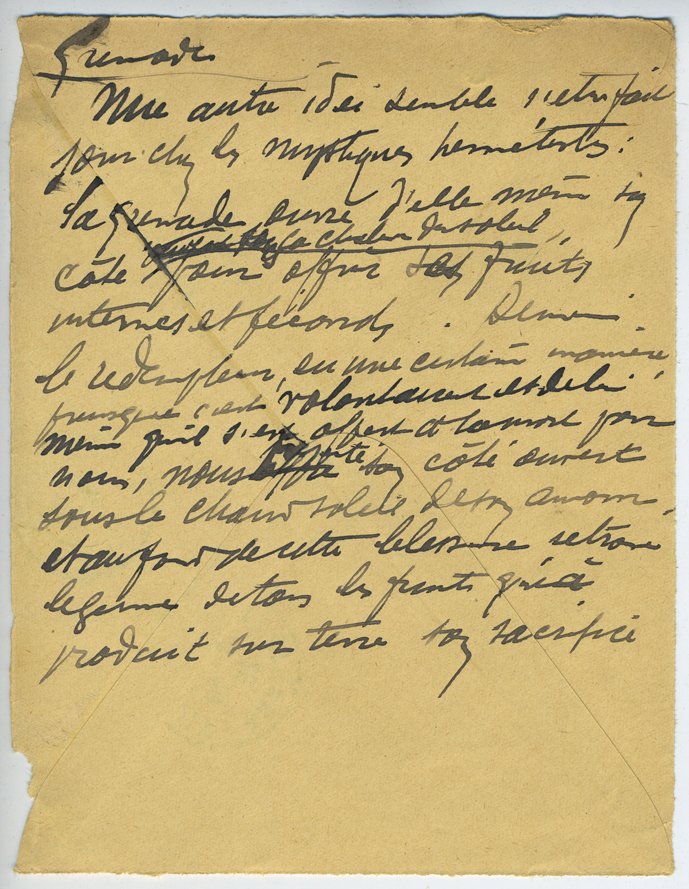 Grenade
Une autre idée semble s'être fait
jour chez les mystiques hermétistes :
La grenade ouvre d'elle même son
sous la chaleur du soleil,
côté pour offrir ses fruits
internes et féconds. De même
le rédempteur, en une certaine manière,
puisque c'est volontairement et de lui
même qu'il s'est offert à la mort pour
nous, nous présente son côté ouvert
sous le chaud soleil de son amour,
et au fond de cette blessure se trouve
le germe de tous les fruits qu'a
produit sur terre son sacrifice